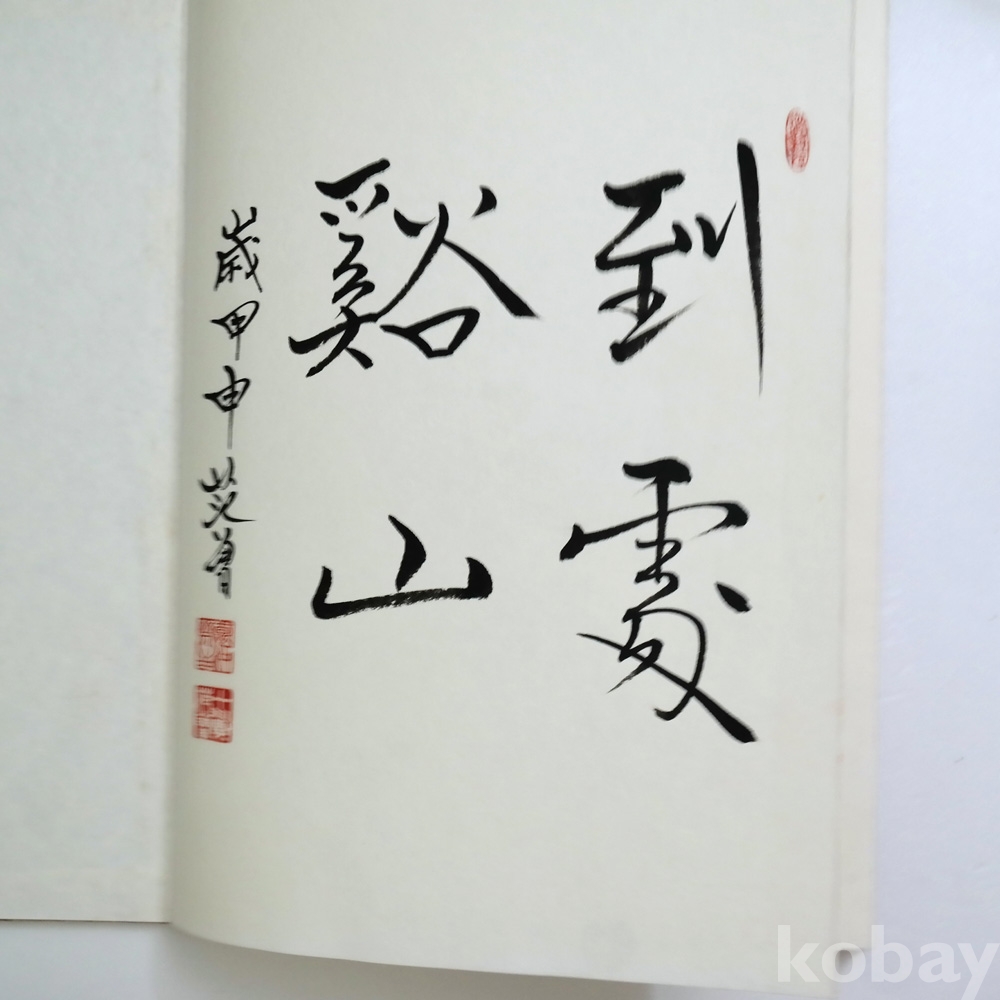 到處
谿山
歲甲申
kobay